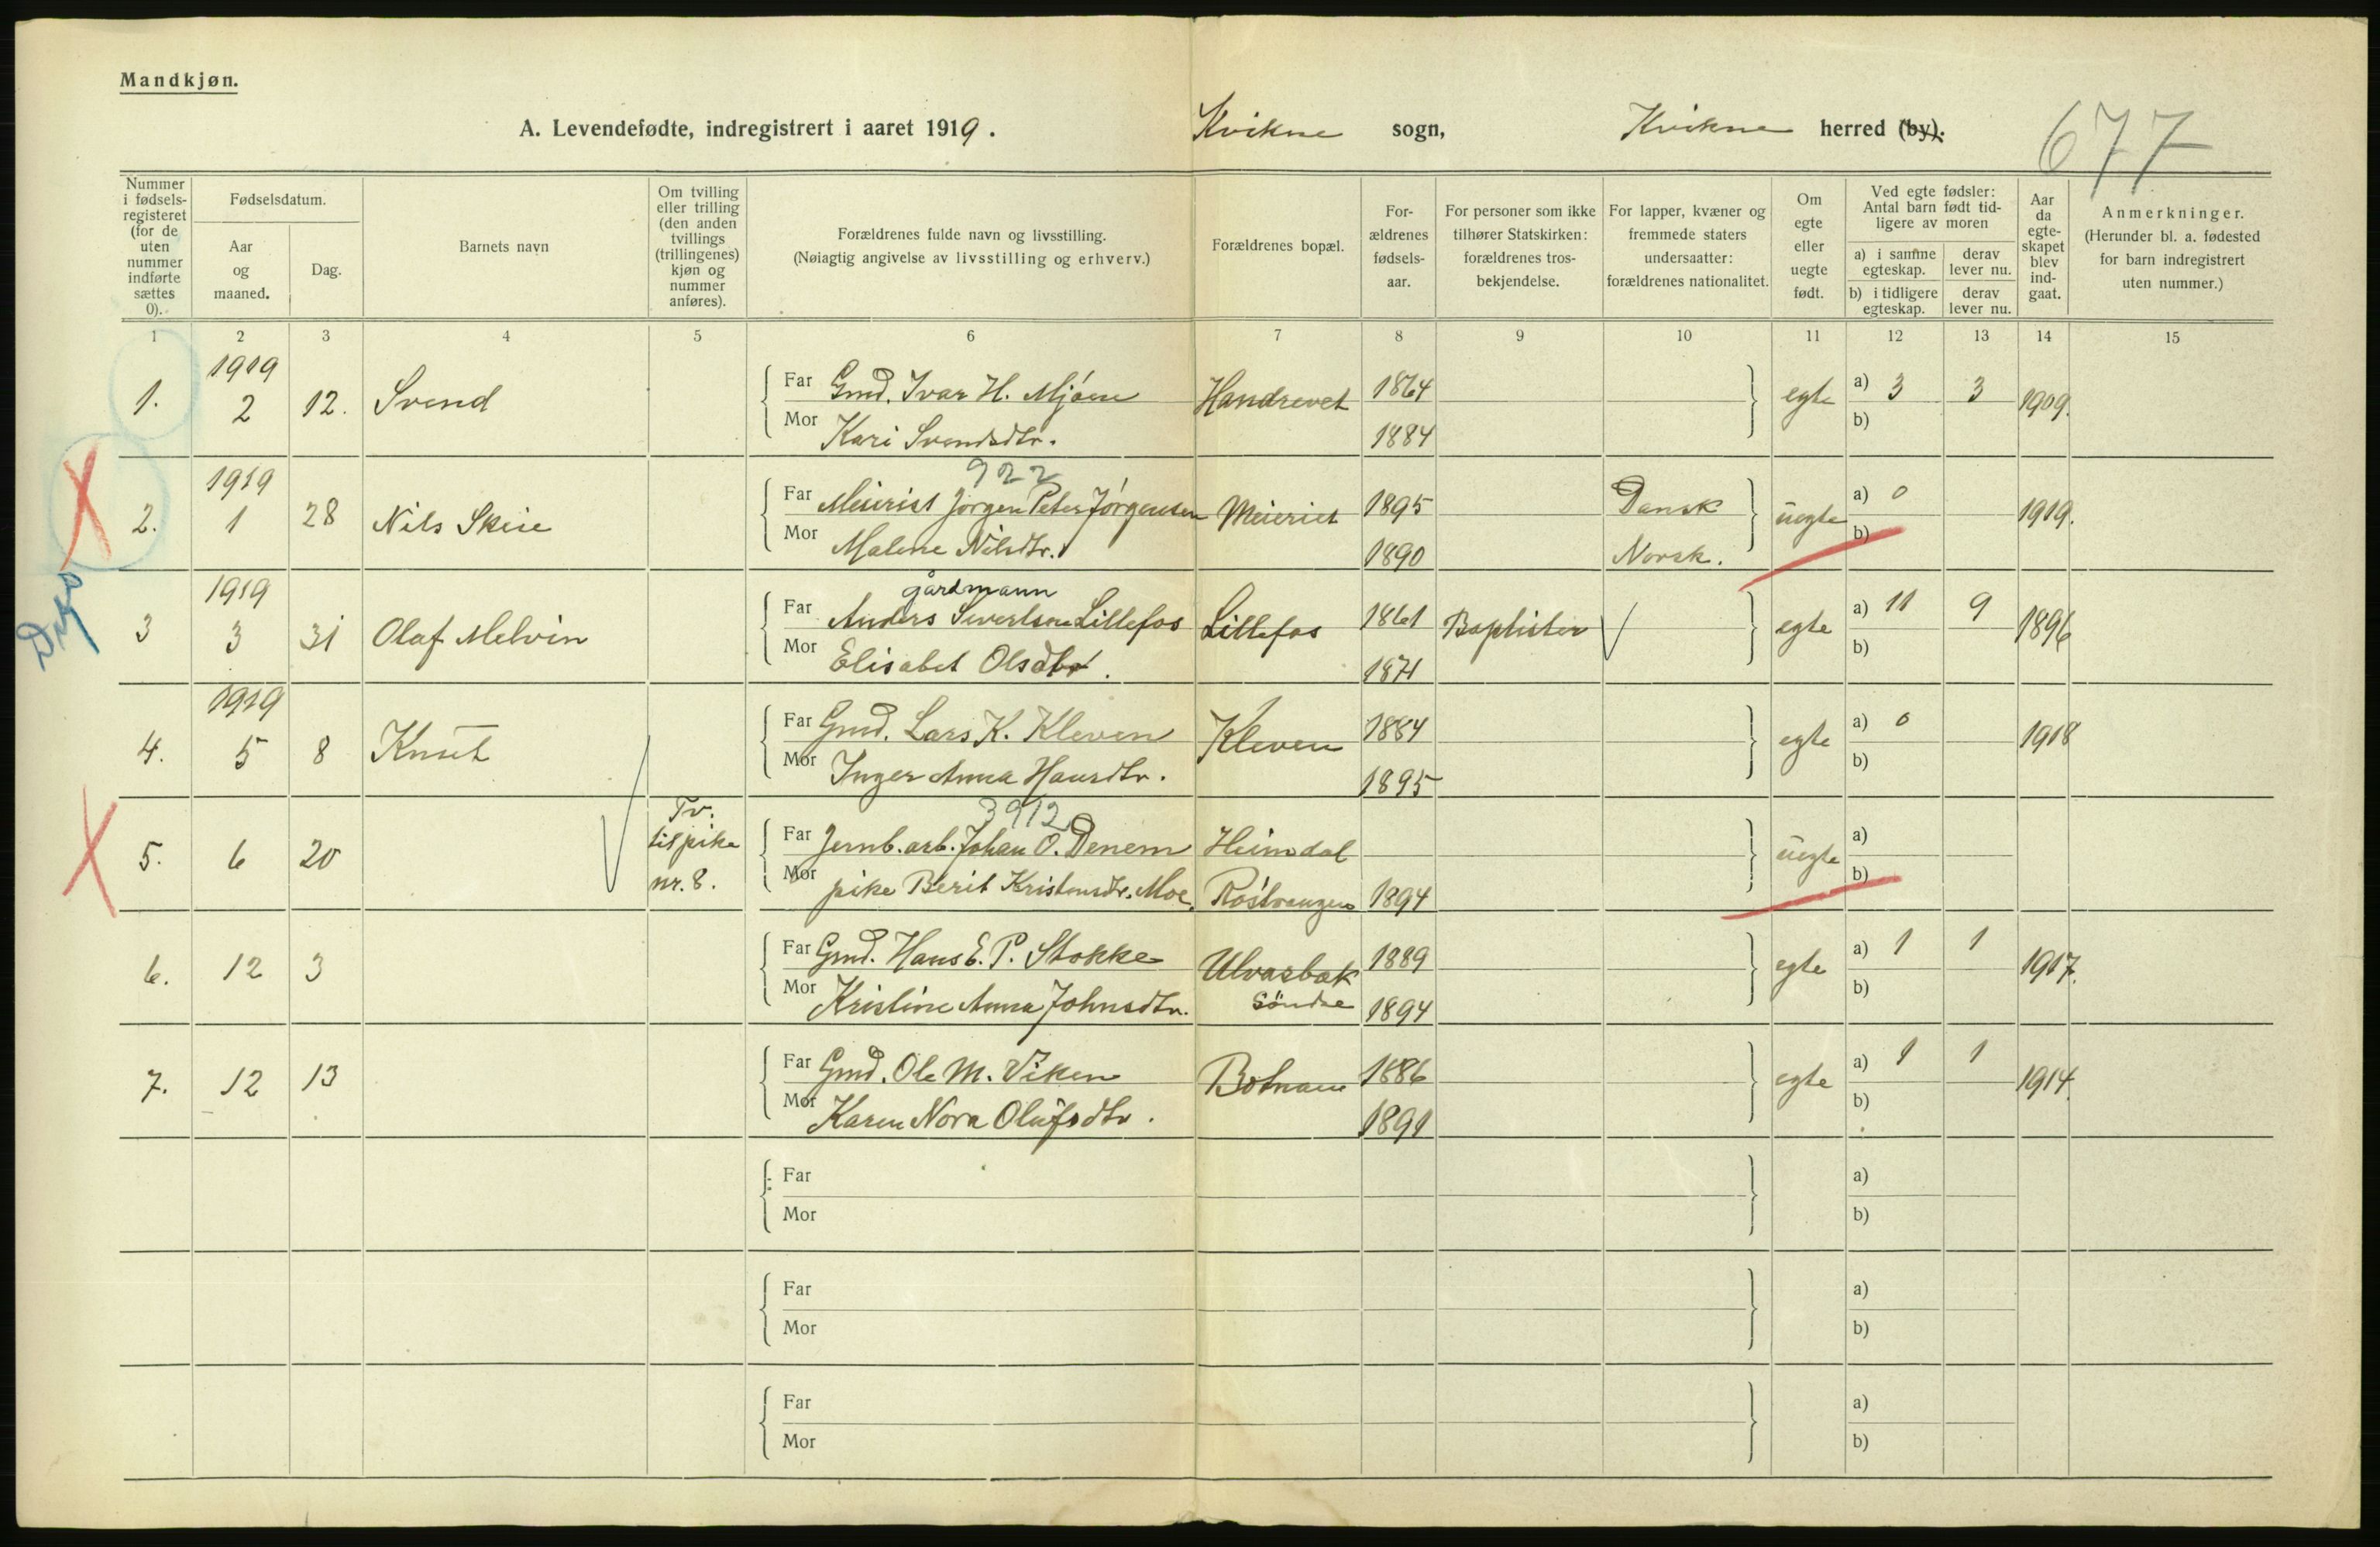 Mandkjøn.
A. Levendefødte, indregistrert i aaret 1919. Kvikne sogn, Kvikne herred (by). 677
Nummer i fødsels-registeret (for de uten nummer indførte sættes 0).
Fødselsdatum.
Aar og maaned.
Dag.
Barnets navn
Om tvilling eller trilling (den anden tvillings (trillingenes) kjøn og nummer anføres).
Forældrenes fulde navn og livsstilling.
(Nøiagtig angivelse av livsstilling og erhverv.)
Forældrenes bopæl.
For-ældrenes fødsels-aar.
For personer som ikke tilhører Statskirken: forældrenes tros-bekjendelse.
For lapper, kvæner og fremmede staters undersaatter: forældrenes nationalitet.
Om egte eller uegte født.
Ved egte fødsler: Antal barn født tid-ligere av moren
a) i samme egteskap. derav lever nu.
b) i tidligere egteskap. derav lever nu.
Aar da egte-skapet blev ind-gaat.
Anmerkninger.
(Herunder bl. a. fødested for barn indregistrert uten nummer.)
1 2 3 4 5 6 7 8 9 10 11 12 13 14 15
1919
1. 2 12. Svend Far Gmd. Ivar H. Mjöen Handrevet 1864 egte a) 3 3 1909.
Mor Kari Svendsdtr. 1884 b)
922
1919
2. 1 28 Nils Skeie Far Meierist Jörgen Peter Jörgensen Meieriet 1895 Dansk uegte a) 0 1919.
Mor Malene Nilsdtr. 1890 Norsk. b)
gårdmann
1919
3 3 31 Olaf Melvin Far Anders Sivertsen Lillefos Lillefos 1861 Baptister egte a) 11 9 1896
Mor Elisabet Olsdtr. 1871 b)
1919
4. 5 8 Knut Far Gmd. Lars K. Kleven Kleven 1884 egte a) 0 1918
Mor Inger Anna Hansdtr. 1895 b)
3912
5. 6 20 Tv. til pike nr. 8. Far Jernb.arb. Johan O. Denem Heimdal uegte a)
Mor pike Berit Kristensdtr. Moe. Röstvangen 1894 b)
6. 12 3 Far Gmd. Hans E. P. Stokke Ulvasbak 1889 egte a) 1 1 1917.
Mor Kristine Anna Johnsdtr. Söndre 1894 b)
7. 12 13 Far Gmd. Ole M. Viken Botnan 1886 egte a) 1 1 1914.
Mor Karen Nora Olufsdtr. 1891 b)
Far a)
Mor b)
Far a)
Mor b)
Far a)
Mor b)